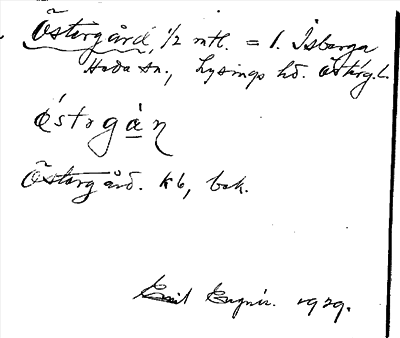 Östergård, 1/2 mtl. = 1. Isberga
Heda sn., Lysings hd. Östergl.
östərgån
Östergård. kb, bok.
Emil Engnér. 1929.